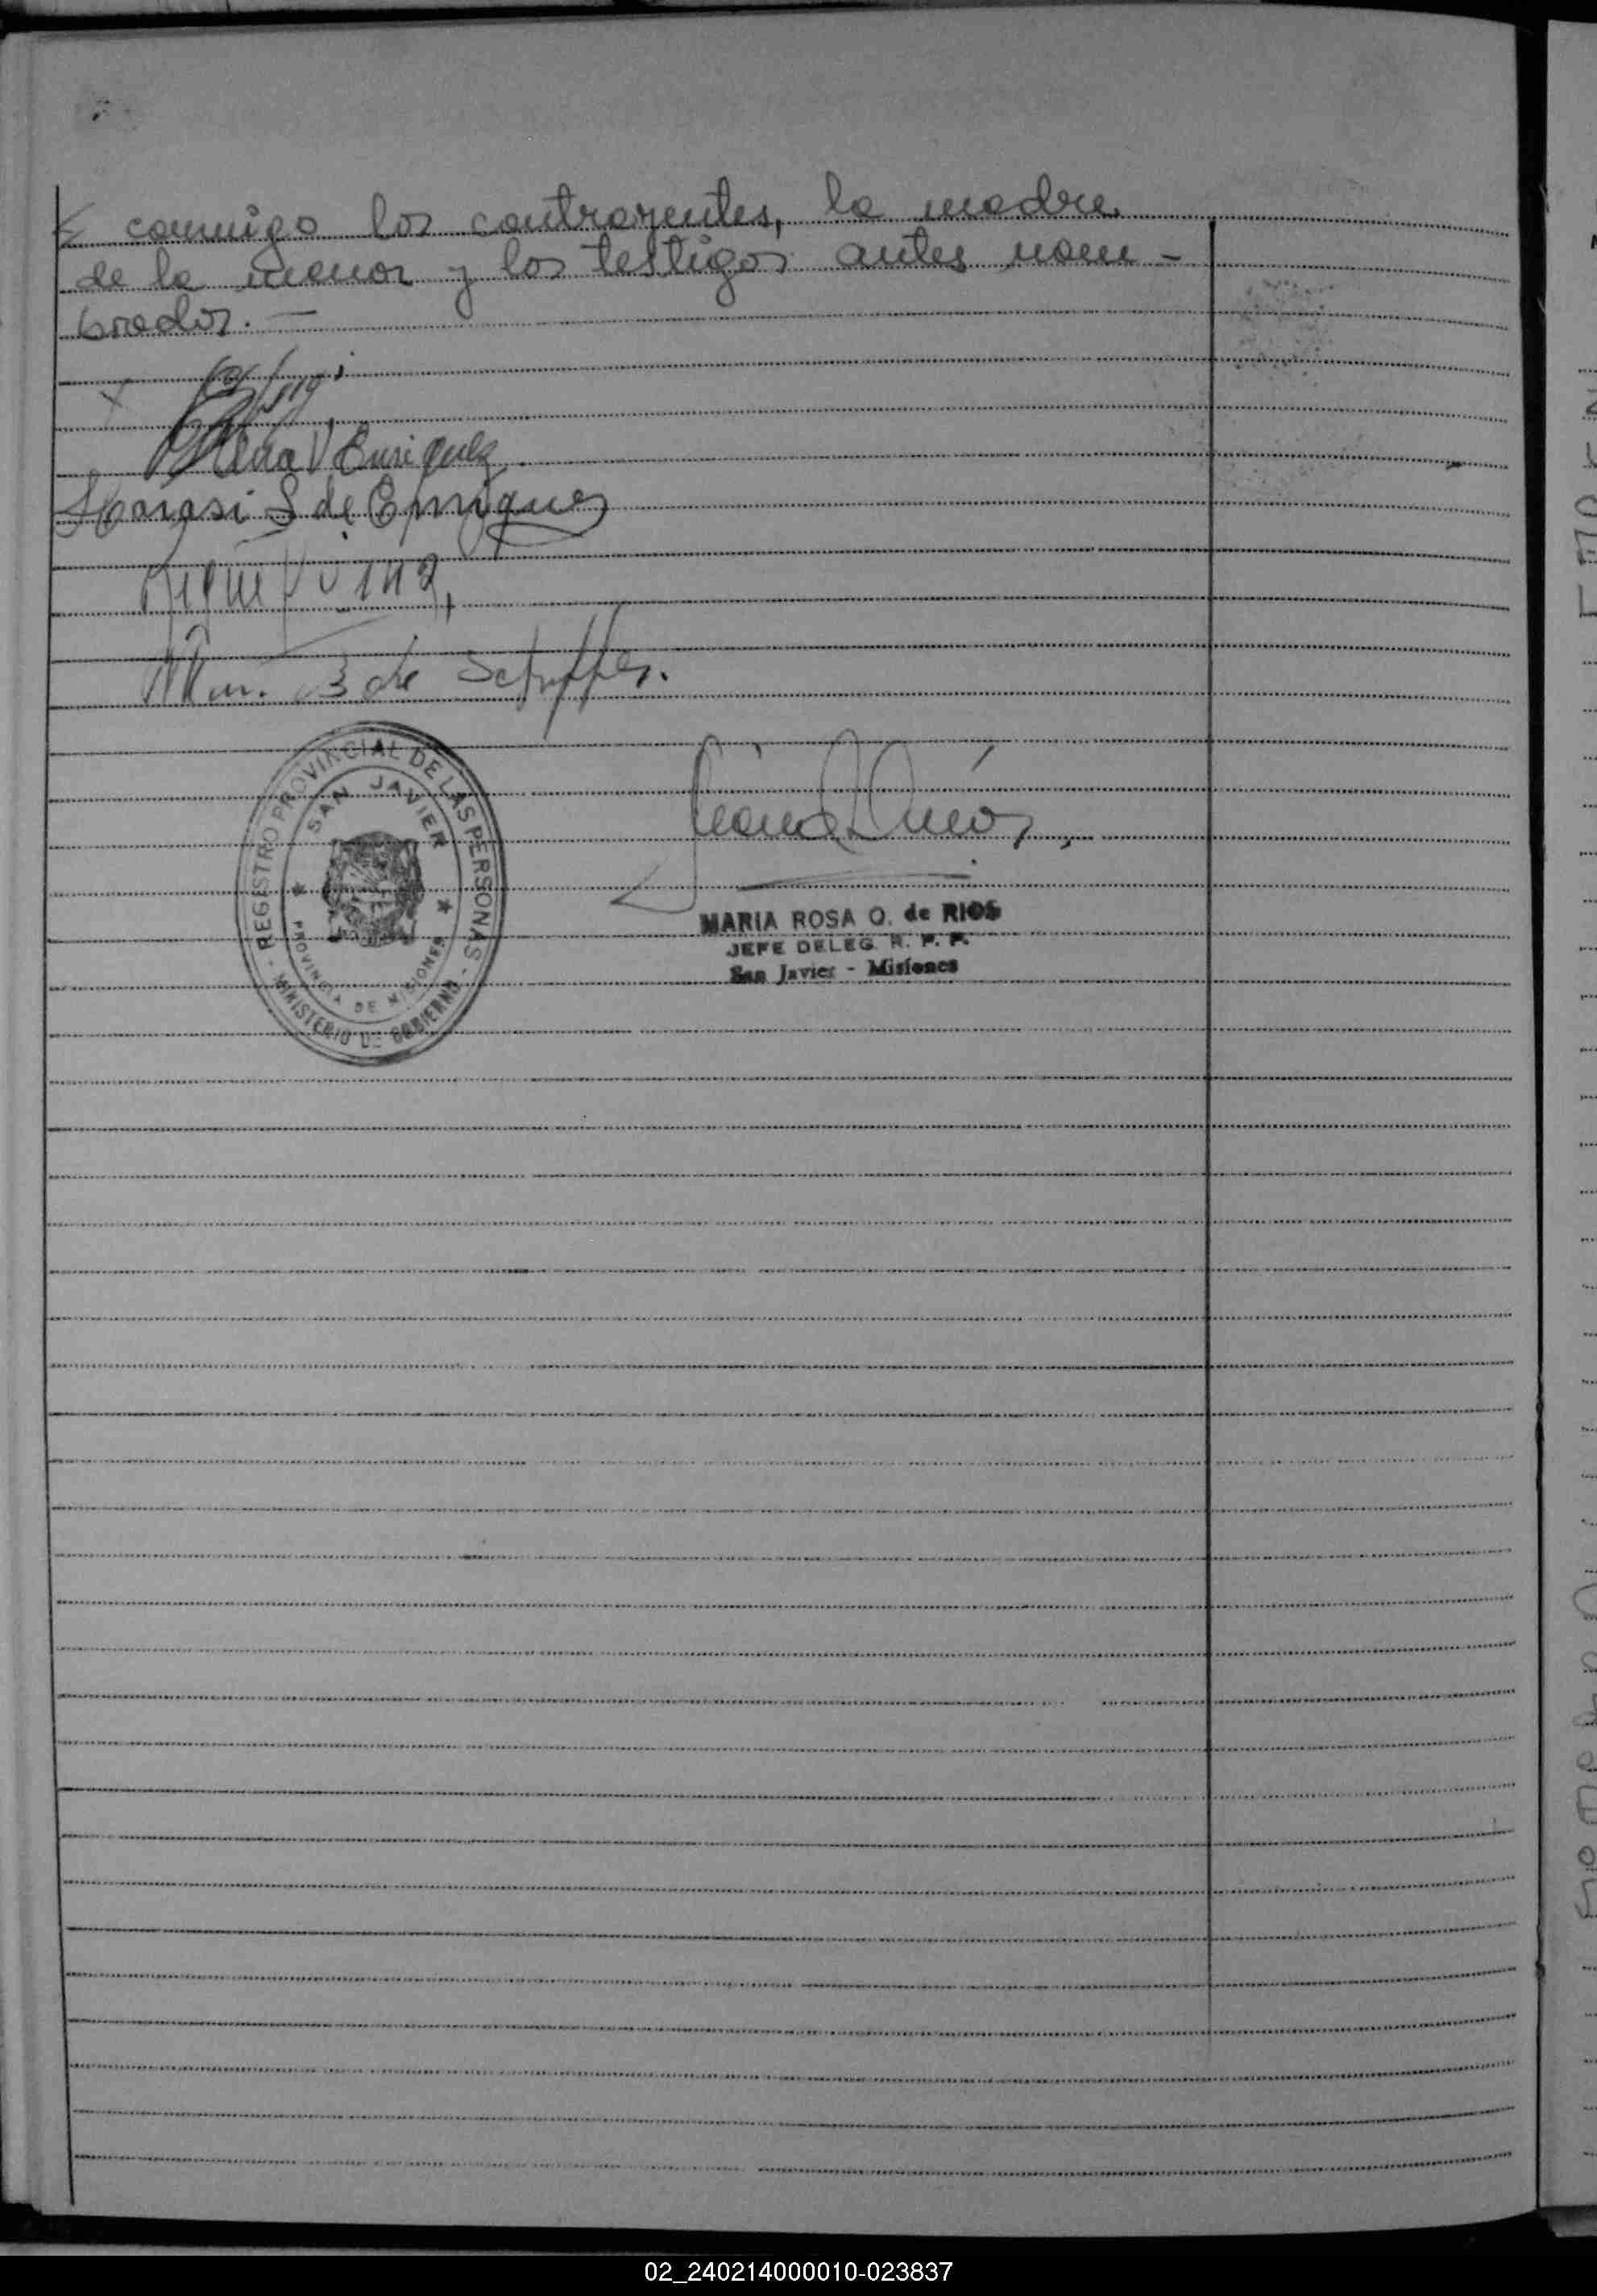 conmigo los contrayentes, la madre
de la menor y los testigos antes nom-
brados.—
Elena V Enriquez
S de Enriquez
de
REGISTRO PROVINCIAL DE LAS PERSONAS
SAN JAVIER
PROVINCIA DE MISIONES
- MINISTERIO DE GOBIERNO -
MARIA ROSA O. de RIOS
JEFE DELEG. R. P. P.
San Javier - Misiones
02_240214000010-023837